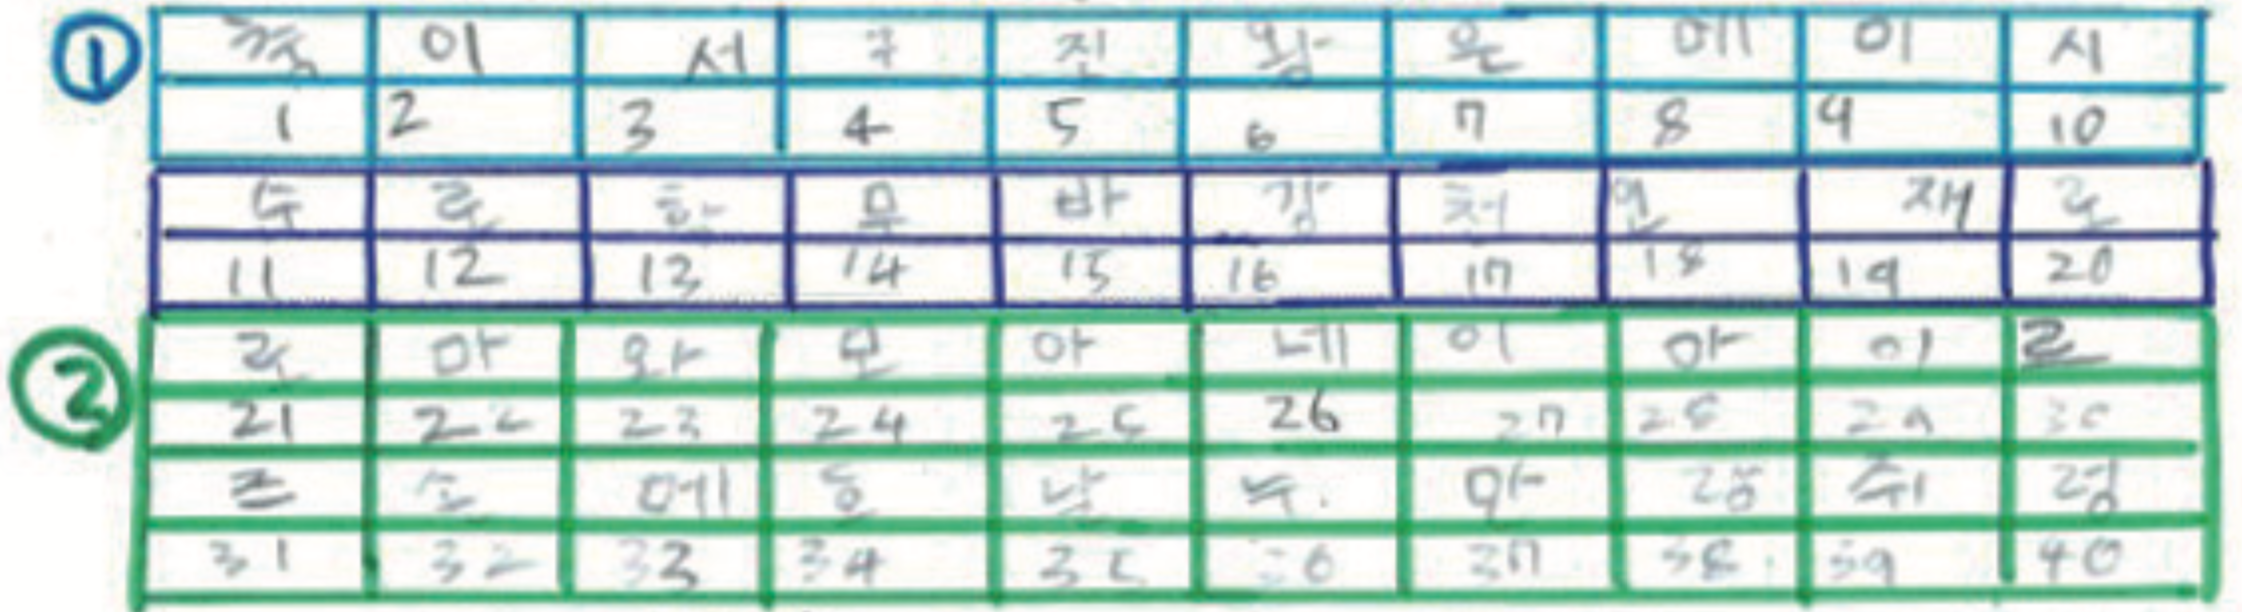 ① 이 서 구 진 왕 은 에 이 시
1 2 3 4 5 6 7 8 9 10
수 로 한 무 바 강 처 인 재 로
11 12 13 14 15 16 17 18 19 20
② 로 마 와 모 아 네 이 아 이 르
21 22 23 24 25 26 27 28 29 30
즈 소 에 동 날 누 마 랑 쥐 령
31 32 33 34 35 36 37 38 39 40